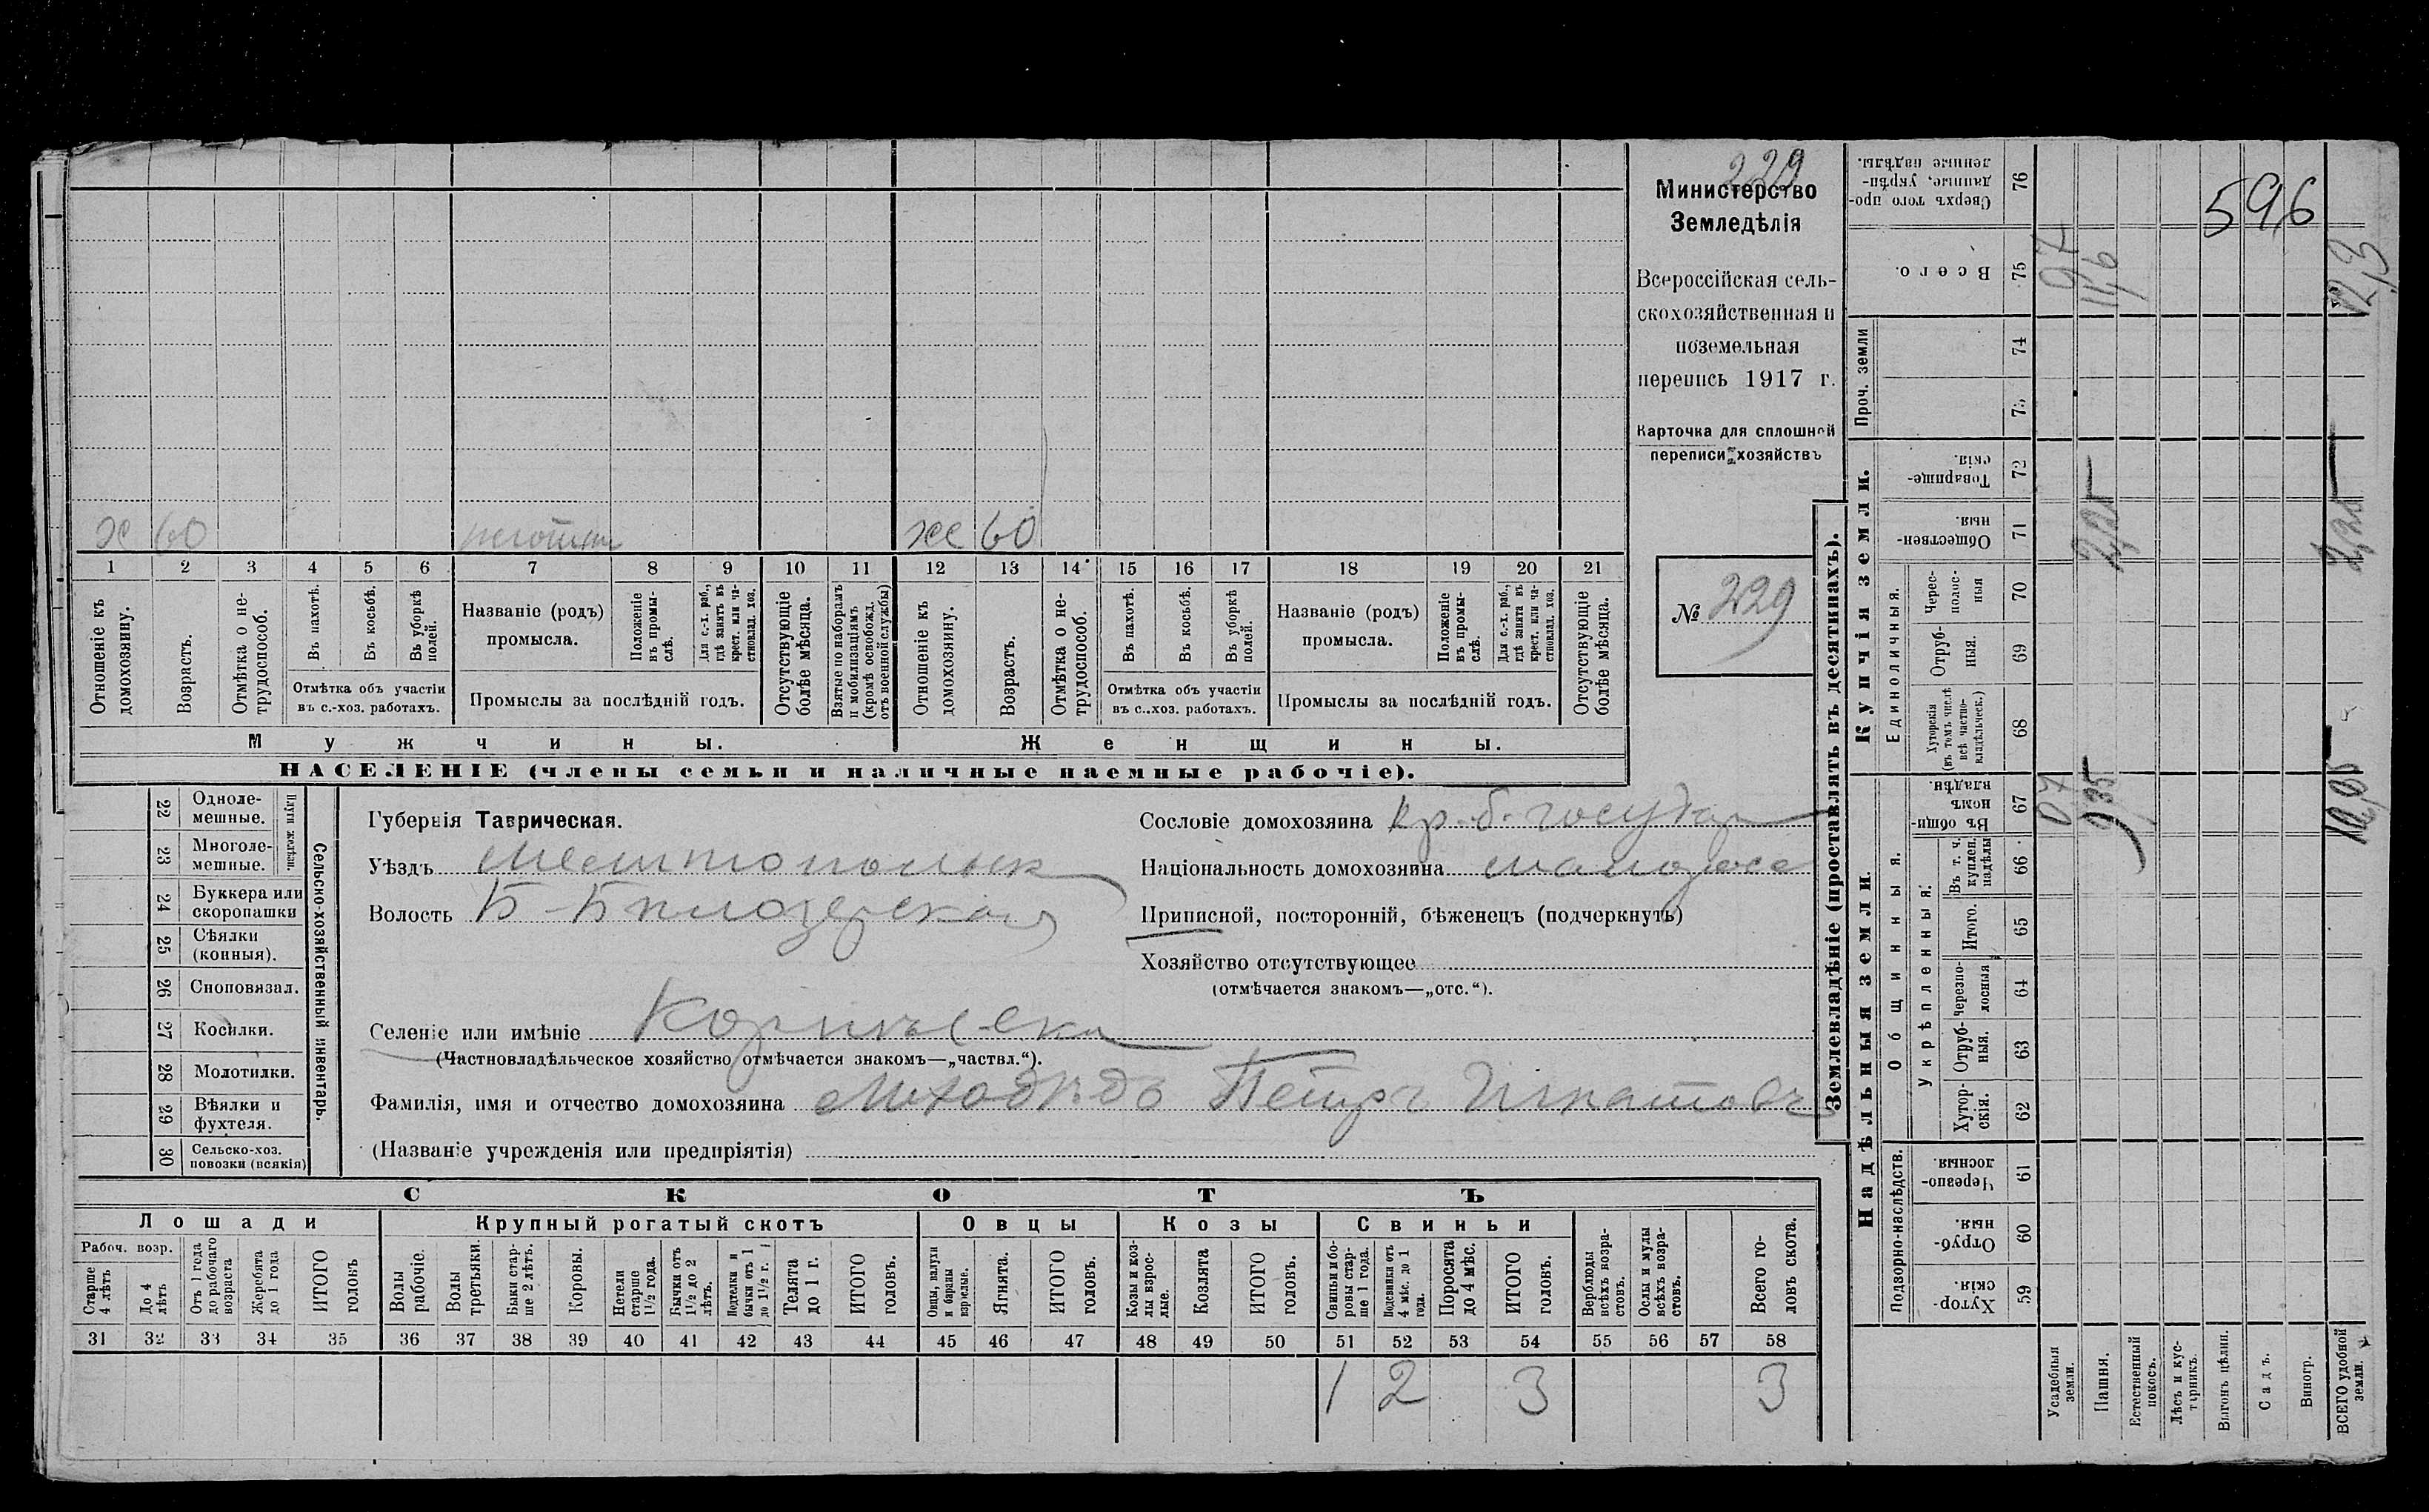 229
Министерство
Земледѣлія
Всероссійская сель-
скохозяйственная и
поземельная
перепись 1917 г.
Карточка для сплошной
переписи хозяйствъ
№ 229
х 60
ж 60
1 2 3 4 5 6 7 8 9 10 11 12 13 14 15 16 17 18 19 20 21
Отношеніе къ домохозяину.
Возрастъ.
Отмѣтка о не-трудоспособ.
Въ пахотѣ.
Въ косьбѣ.
Въ уборкѣ полей.
Отмѣтка объ участіи
въ с.-хоз. работахъ.
Названіе (родъ)
промысла.
Положеніе въ промы-слѣ.
Для с.-х. раб., гдѣ занятъ въ крест. или ча-стновлад. хоз.
Промыслы за послѣдній годъ.
Отсутствующіе болѣе мѣсяца.
Взятые по наборамъ и мобилизаціямъ (кромѣ освобожд. отъ военной службы)
Отношеніе къ домохозяину.
Возрастъ.
Отмѣтка о не-трудоспособ.
Въ пахотѣ.
Въ косьбѣ.
Въ уборкѣ полей.
Отмѣтка объ участіи
въ с..хоз. работахъ.
Названіе (родъ)
промысла.
Положеніе въ промы-слѣ.
Для с.-х. раб., гдѣ занята въ крест. или ча-стновлад. хоз.
Промыслы за послѣдній годъ.
Отсутствующіе болѣе мѣсяца.
Мужчины.
Женщины.
НАСЕЛЕНІЕ (члены семьи и наличные наемные рабочіе).
Сельско-хозяйственный инвентарь.
Плуги желѣзн.
22 Одноле-мешные.
23 Многоле-мешные.
24 Буккера или скоропашки
25 Сѣялки (конныя).
26 Споповязал.
27 Косилки.
28 Молотилки.
29 Вѣялки и фухтеля.
30 Сельско-хоз. повозки (всякія)
Губернія Таврическая.
Уѣздъ Мелитопольск
Волость Б-Бѣлозерская
Селеніе или имѣніе
(Частновладѣльческое хозяйство отмѣчается знакомъ—„частвл.“).
Фамилія, имя и отчество домохозяина Петръ Игнатовъ
(Названіе учрежденія или предпріятія)
Сословіе домохозяина кр. б. государ
Національность домохозяина малоросс
Приписной, посторонній, бѣженецъ (подчеркнуть)
Хозяйство отсутствующее
(отмѣчается знакомъ—„отс.“).
СКОТЪ
Лошади
Крупный рогатый скотъ
Овцы
Козы
Свиньи
Рабоч. возр.
Старше 4 лѣтъ
До 4 лѣтъ
Отъ 1 года до рабочаго возраста
Жеребята до 1 года
ИТОГО головъ
Волы рабочіе
Волы третьяки.
Быки стар-ше 2 лѣтъ.
Коровы.
Нетели старше 1½ года.
Бычки отъ 1½ до 2 лѣтъ.
Подтелки и бычки отъ 1 до 1½ г.
Телята до 1 г.
ИТОГО головъ.
Овцы, валухи и бараны взрослые.
Ягнята.
ИТОГО головъ.
Козы и коз-лы взрос-лые.
Козлята
ИТОГО головъ.
Свиньи и бо-ровы стар-ше 1 года.
Подсвинки отъ 4 мѣс. до 1 года.
Поросята до 4 мѣс.
ИТОГО головъ.
Верблюды всѣхъ возра-стовъ.
Ослы и мулы всѣхъ возра-стовъ.
Всего го-ловъ скота.
31 32 33 34 35 36 37 38 39 40 41 42 43 44 45 46 47 48 49 50 51 52 53 54 55 56 57 58
1 2 3 3
Землевладѣніе (проставлять въ десятинахъ).
Купчія земли.
Надѣльныя земли.
Проч. земли
Сверхъ того про-данные, укрѣп-ленные надѣлы. 76
Всего. 75
74
73
Товарище-скія. 72
Обществен-ныя. 71
Единоличныя.
Черес-полос-ныя 70
Отруб-ныя. 69
Хуторскія (въ томъ числѣ всѣ частно-владѣльческ.) 68
Общинныя.
Въ общи-номъ владѣн. 67
Укрѣпленныя:
Въ т. ч. куплен. надѣлы 66
Итого. 65
Черезпо-лосныя 64
Отруб-ныя. 63
Хутор-скія. 62
Подворно-наслѣдств.
Черезпо-лосныя. 61
Отруб-ныя. 60
Хутор-скія. 59
Усадебныя земли.
Пашня.
Естественный покосъ.
Лѣсъ и кус-тарникъ.
Выгонъ цѣлин.
Садъ.
Виногр.
ВСЕГО удобной земли.
596
0,7
11,6
12,3
2,25
2,25
0,7
9,35
10,05